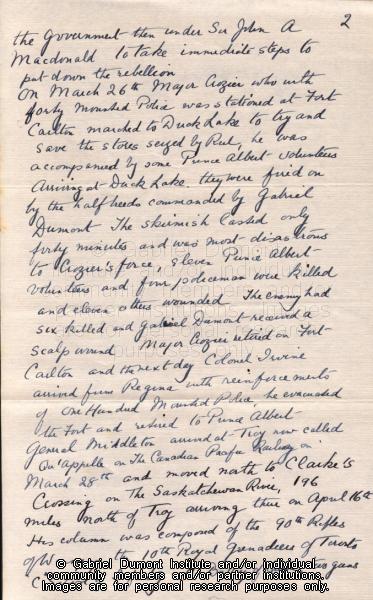 2
the Government then under Sir John A
Macdonald to take immediate steps to
put down the rebellion
On March 26th Major Crozier who with
forty Mounted Police was stationed at Fort
Carlton marched to Duck Lake to try and
save the stores seized by Riel, he was
accompanied by some Prince Albert volunteers
Arriving at Duck Lake they were fired on
by the halfbreeds commanded by Gabriel
Dumont The skirmish lasted only
forty minutes and was most disastrous
to Crozier's force, eleven Prince Albert
volunteers and four policeman were killed
and eleven others wounded The enemy had
six killed and Gabriel Dumont received a
scalp wound Major Crozier retired on Fort
Carlton and the next day Colonel Irvine
arrived from Regina with reinforcements
of One Hundred Mounted Police, he evacuated
the Fort and retired to Prince Albert
General Middleton arrived at Troy now called
Qu'appelle on The Canadian Pacific Railway on
March 28th and moved north to Clarke's
Crossing on The Saskatchewan River, 196
miles north of Troy arriving there on April 16th
His column was composed of the 90th Rifles
of W the 10th Royal Grenadiers of Toronto
guns
© Gabriel Dumont Institute and/or individual
community members and/or partner institutions.
Images are for personal research purposes only.